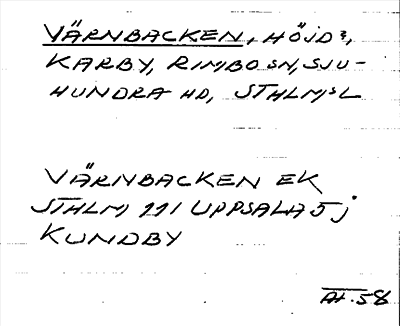 VÄRNBACKEN, HÖJD?,
KARBY, RIMBO SN, SJU-
HUNDRA HD, STHLMS L
VÄRNBACKEN EK
STHLM 111 UPPSALA 5 j
KUNDBY
58